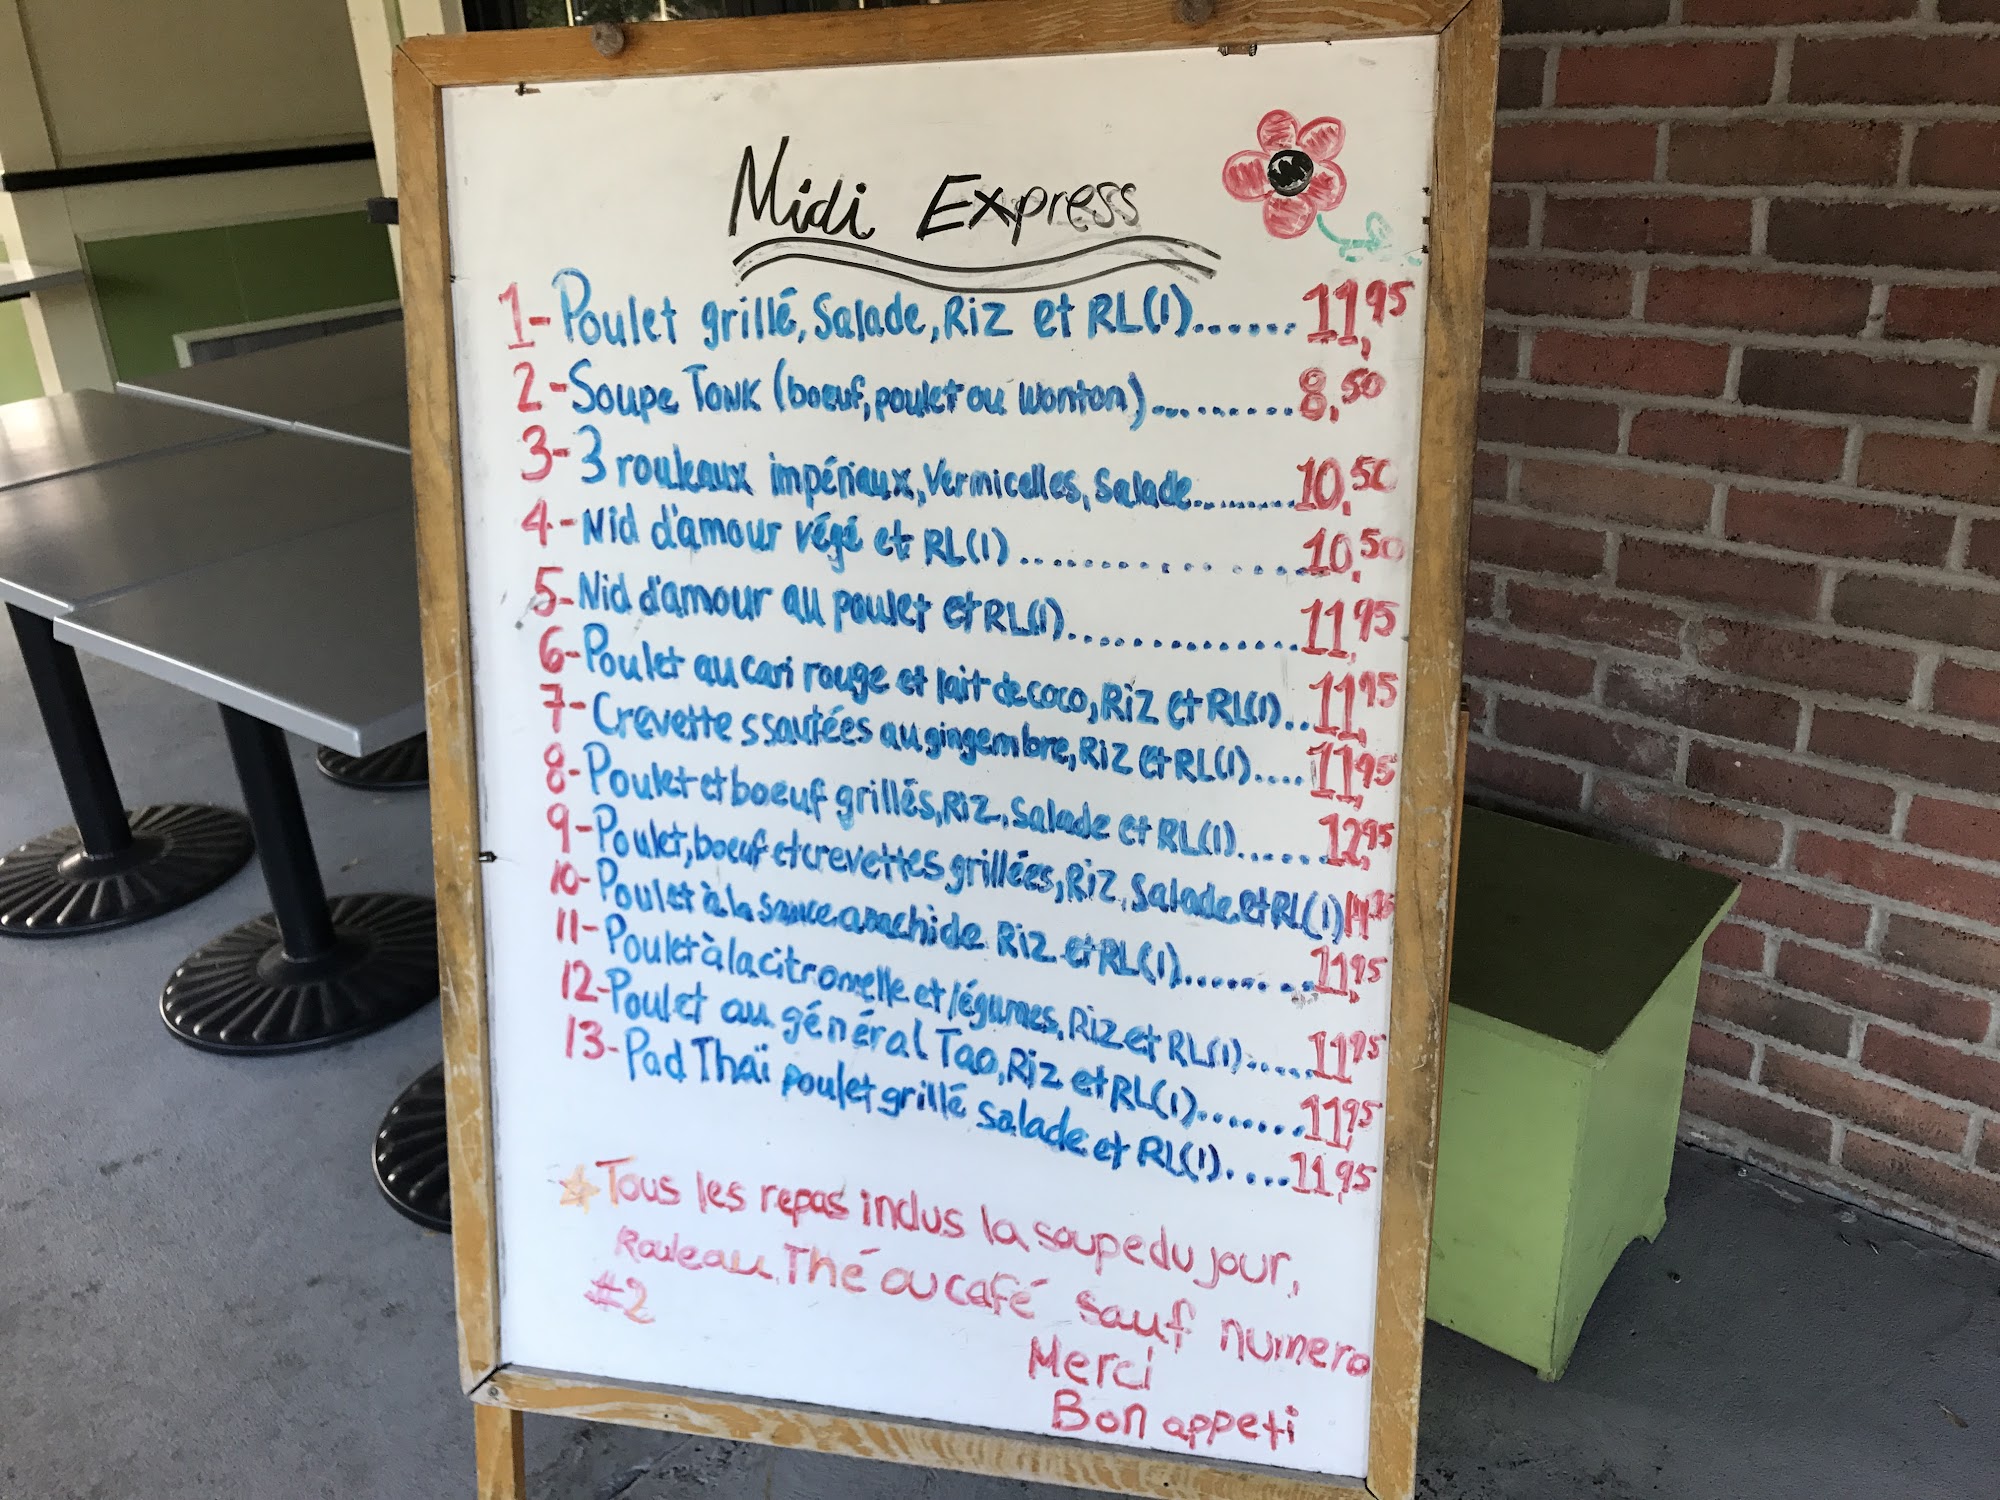 Midi Express
1- Poulet grillé, Salade, Riz et RL(1)...... 11,95
2- Soupe TONK (boeuf, poulet ou wonton).......... 8,50
3- 3 rouleaux impériaux, Vermicelles, Salade......... 10,50
4- Nid d'amour végé et RL(1) ................ 10,50
5- Nid d'amour au poulet et RL(1).............. 11,95
6- Poulet au cari rouge et lait de coco, Riz et RL(1).. 11,95
7- Crevettes sautées au gingembre, Riz et RL(1).... 11,95
8- Poulet et boeuf grillés, Riz, Salade et RL(1)...... 12,95
9- Poulet, boeuf et crevettes grillées, Riz, Salade et RL(1)
10- Poulet à la sauce arachide Riz et RL(1)......... 11,95
11- Poulet à la citronnelle et légumes, Riz et RL(1)..... 11,95
12- Poulet au général Tao, Riz et RL(1)........ 11,95
13- Pad Thaï poulet grillé salade et RL(1).... 11,95
Tous les repas inclus la soupe du jour,
Rouleau, Thé ou café sauf numero
#2
Merci
Bon appeti